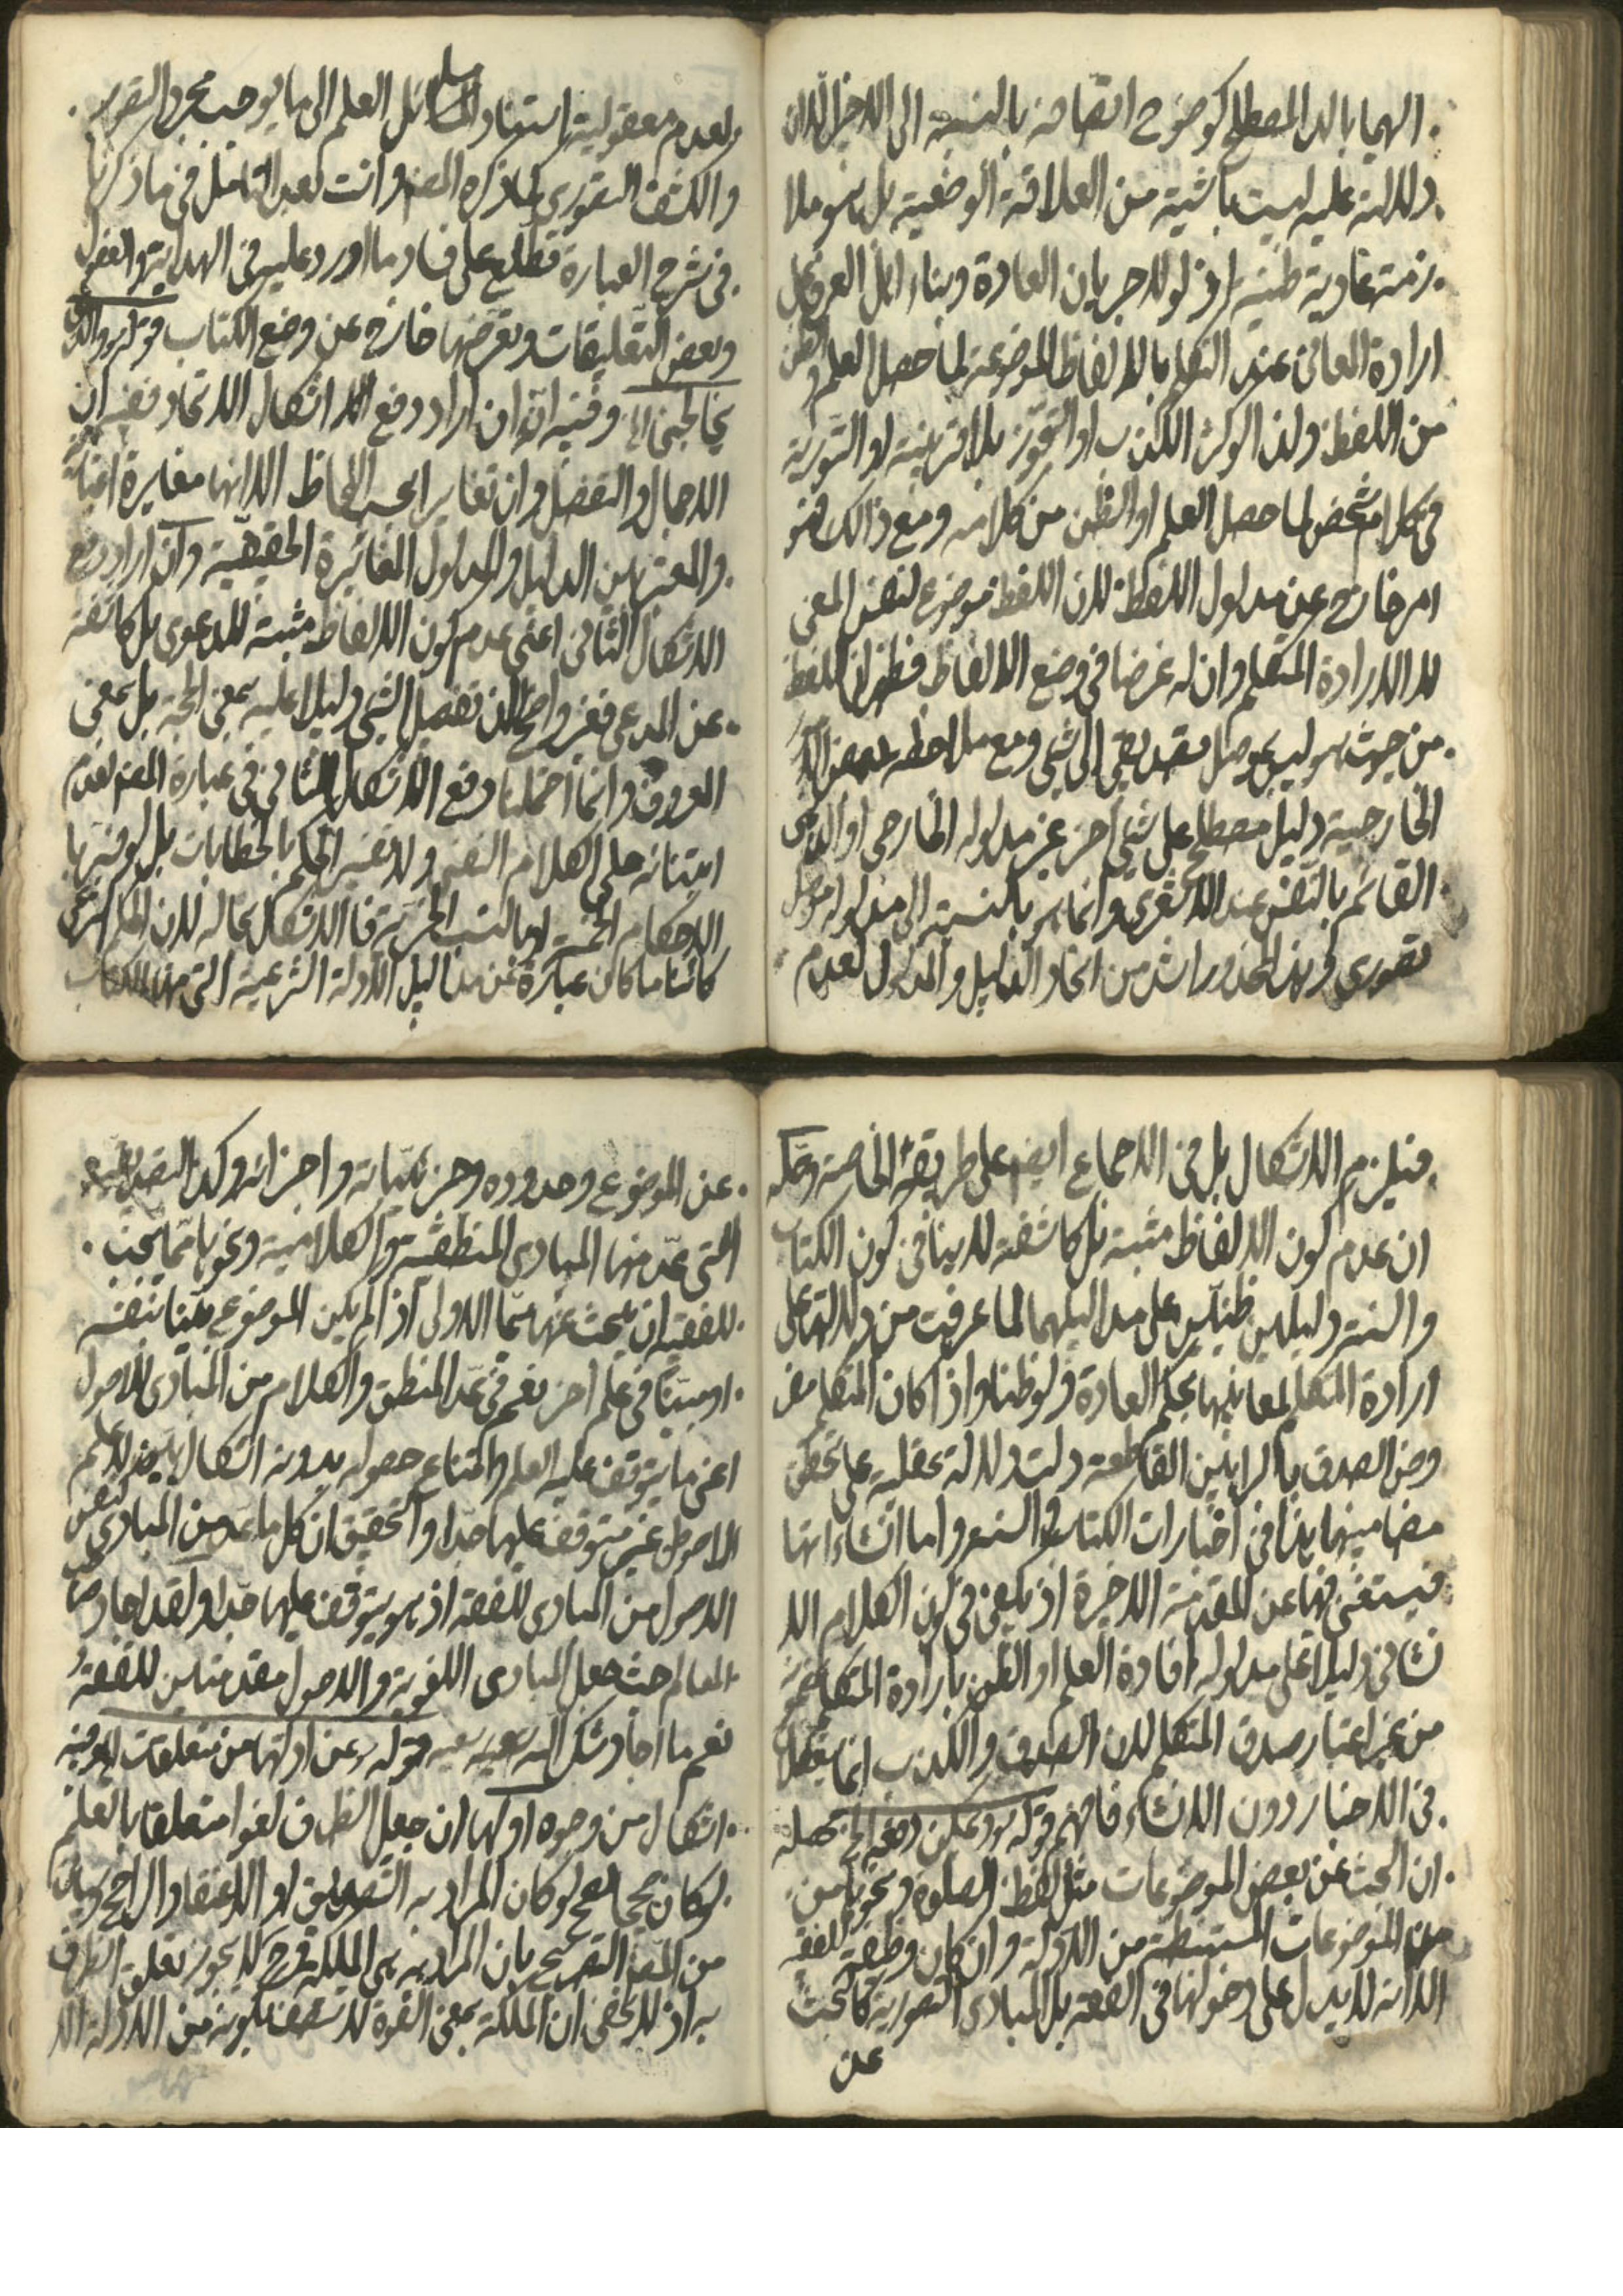 اليهما بالدال المصطلح كوضوح اتصافه بالنسبة الى الاخر لان
دلالته عليه ليست ناشية من العلاقة الوضعية بل هو ملا
زمته عادية ظنية اذ لولا جريان العادة وبناء اهل العرف على
ارادة المعانى عند التكلم بالالفاظ الموضوعة لما حصل العلم والظن
من اللفظ ولذا لو كثر الكذب او التجوز بلا قرينة او التورية
فى كلام شخص لما حصل العلم او الظن من كلامه ومع ذالك فهو
امر خارج عن مدلول اللفظ لان اللفظ موضوع لنفس المعنى
لا لارادة المتكلم وان له غرضا فى وضع الالفاظ فظهر ان اللفظ
من حيث هو ليس بموصل تصديقى الى شئ ومع ملاحظة بعض
الخارجية دليل مصطلح على شئ آخر غير مدلوله الخارجى او الذهنى
القائم بالنفس عند الاشعرى وانما هو بالنسبة الى مدلوله موصل
تصورى من اتحاد الدليل والمدلول لعدم
ولعدم معقولية استناد المسائل العلم الى ما يوجب مجرد التصور
والكشف التصورى كما ذكره المص وانت بعد التامل فى ما ذكرنا
فى شرح العبارة تطلع على فساد ما اورد عليه فى الهداية والفصول
وبعض التعليقات وتعرضها خارج عن وضع الكتاب قوله والذى
يخالجنى الخ وفيه انه ان اراد دفع الاشكال الاتحاد ففيه ان
الاجمال والتفصيل وان تغاير بحسب اللحاظ الا انها مغايرة اعتبارية
والمعتبر بين الدليل والمدلول المغايرة الحقيقية وان اراد دفع
الاشكال الثانى اعنى عدم كون الالفاظ مثبتة للدعوى بل كاشفة
عن المدعى فغير واضح لان تفصيل الشئ دليلا عليه بمعنى الحجة بل بمعنى
المعروف وانما دفع الاشكال الثانى فى عبارة المص لعدم
ابتنائه على الكلام النفسى ولا تفسير الحكم بالخطابات بل لو فسرنا
الاحكام الخمسة او بالنسب الخبرية فالاشكال بحاله لان الحكم الشرعى
كائنا ما كان عبارة عن مداليل الادلة الشرعية التى منها الكتاب
فيلزم الاشكال بل فى الاجماع ايضا على طريقة الخاصة
ان عدم كون الالفاظ مثبتة بل كاشفة لا ينافى كون الكتاب
والسنة دليلين ظنيين على مداليلهما لما عرفت من دلالتها على
ارادة المتكلم لمعانيها بحكم العادة ولو ظنا واذا كان المتكلم مفر
وض الصدق بالبراهين القاطعة دلت دلالة عقلية على تحقق
مضامينها هذا فى اخبارات الكتاب والسنة واما انشاءاتها
فيستغنى فيها عن المقدمة الاخيرة اذ يكفى فى كون الكلام الا
نشائى دليلا على مدلوله افادة العلم او الظن بارادة المتكلم
من غير اعتبار صدق المتكلم لان الصدق والكذب انما يعقلا
فى الاخبار دون الانشاء فافهم قوله ويمكن دفعه الخ محصله
ان البحث عن بعض الموضوعات مثل لفظ الصلوة ونحوها من
الموضوعات المستنبطة من الادلة وان كان وظيفة الفقيه
الا انه لا يدل على دخولها فى الفقه بل المبادى التصورية كالبحث
عن
عن الموضوع وحدوده وجزئياته واجزائه وكذا التصديقية
التى عد منها المبادى المنطقية والكلامية ونحوها مما يحتاج
للفقيه ان يبحث عنها سيما الاولى اذا لم يكن الموضوع بينا بنفسه
او مبينا فى علم آخر نعم فى عد المنطق والكلام من المبادى الاصول
اعنى ما يتوقف عليه العلم وامتناع حصوله بدونه اشكال
الاصول غير متوقف عليها جدا والتحقيق ان كل ما عد من المبادى
الاصول من المبادى للفقه اذ هو يتوقف عليها جدا ولقد اجاد صاحب
المعالم حيث جعل المبادى اللغوية والاصول مقدمتين للفقه
نعم ما اجاد شكر الله سعيه قوله وعن ادلتها من متعلقات الخ وفيه
اشكال من وجوه اولها ان جعل الظرف لغوا متعلقا بالعلم
لو كان المراد به التصديق او الاعتقاد الراجح
من المص التصريح بان المراد به هى الملكة وح لا يجوز تعلق الظرف
به اذ لا يخفى ان الملكة بمعنى القوة لا تتصف بكونه من الادلة الا